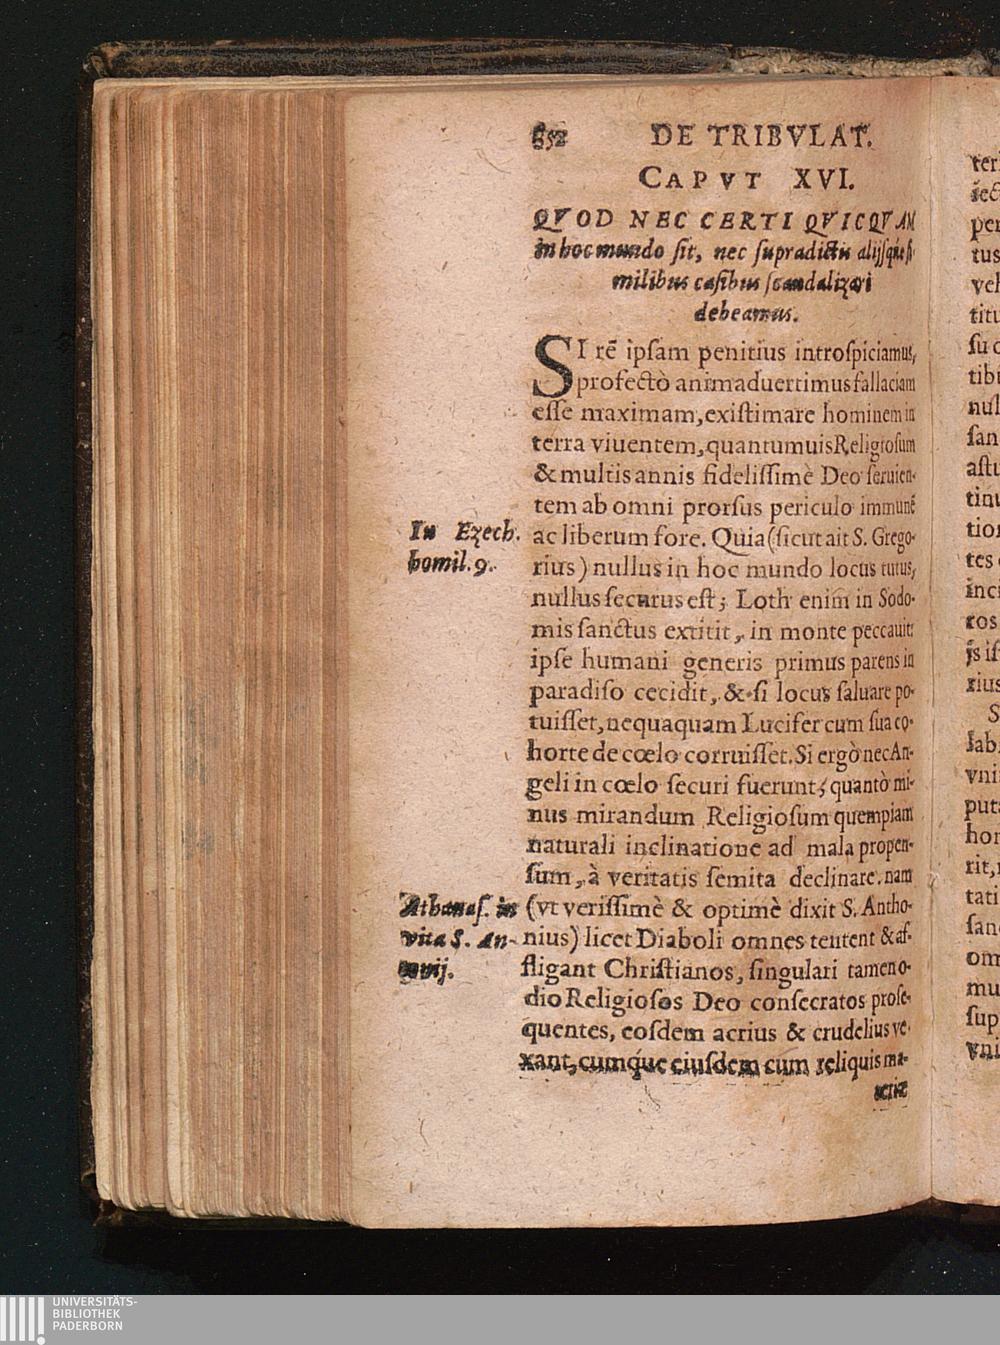 652 DE TRIBVLAT.
CAPVT XVI.
QVOD NEC CERTI QVICQVAM
in hoc mundo ſit, nec ſupradictis alijſque ſi-
milibus caſibus ſcandalizari
debeamus.
SI rē ipſam penitius introſpiciamus,
profectò animaduertimus fallaciam
eſſe maximam, exiſtimare hominem in
terra viuentem, quantumuis Religioſum
& multis annis fideliſſimè Deo ſeruien-
tem ab omni prorſus periculo immunē
In Ezech.
homil. 9.
ac liberum fore. Quia (ſicut ait S. Grego-
rius) nullus in hoc mundo locus tutus,
nullus ſecurus eſt; Loth enim in Sodo-
mis ſanctus extitit, in monte peccauit:
ipſe humani generis primus parens in
paradiſo cecidit, & ſi locus ſaluare po-
tuiſſet, nequaquam Lucifer cum ſua co-
horte de cœlo corruiſſet. Si ergò nec An-
geli in cœlo ſecuri fuerunt; quantò mi-
nus mirandum Religioſum quempiam
naturali inclinatione ad mala propen-
ſum, à veritatis ſemita declinare. nam
Athanaſ. in
vita S. An-
tonij.
(vt veriſſimè & optimè dixit S. Antho-
nius) licet Diaboli omnes tentent & af-
fligant Chriſtianos, ſingulari tamen o-
dio Religioſos Deo conſecratos proſe-
quentes, eoſdem acrius & crudelius ve-
xant, cumque eiuſdem cum reliquis ma-
UNIVERSITÄTS-
BIBLIOTHEK
PADERBORN